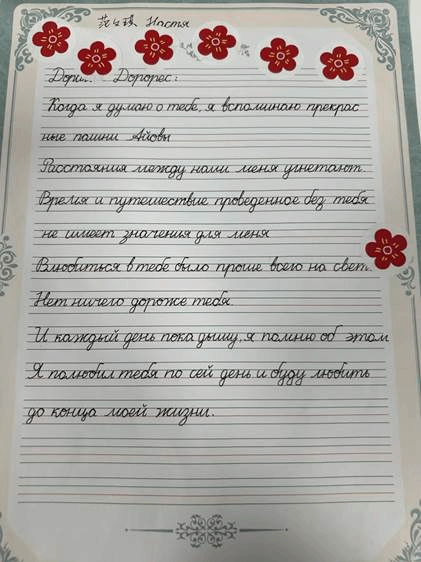 Настя
Дорорес:
Когда я думаю о тебе, я вспоминаю прекрас
ные пашни Айовы
Расстояния между нами меня угнетают.
Время и путешествие проведенное без тебя
не имеет значения для меня
Влюбиться в тебе было проще всего на
Нет ничего дороже тебя.
И каждый день пока дышу, я помню об этом
Я полюбил тебя по сей день и буду любить
до конца моей жизни.